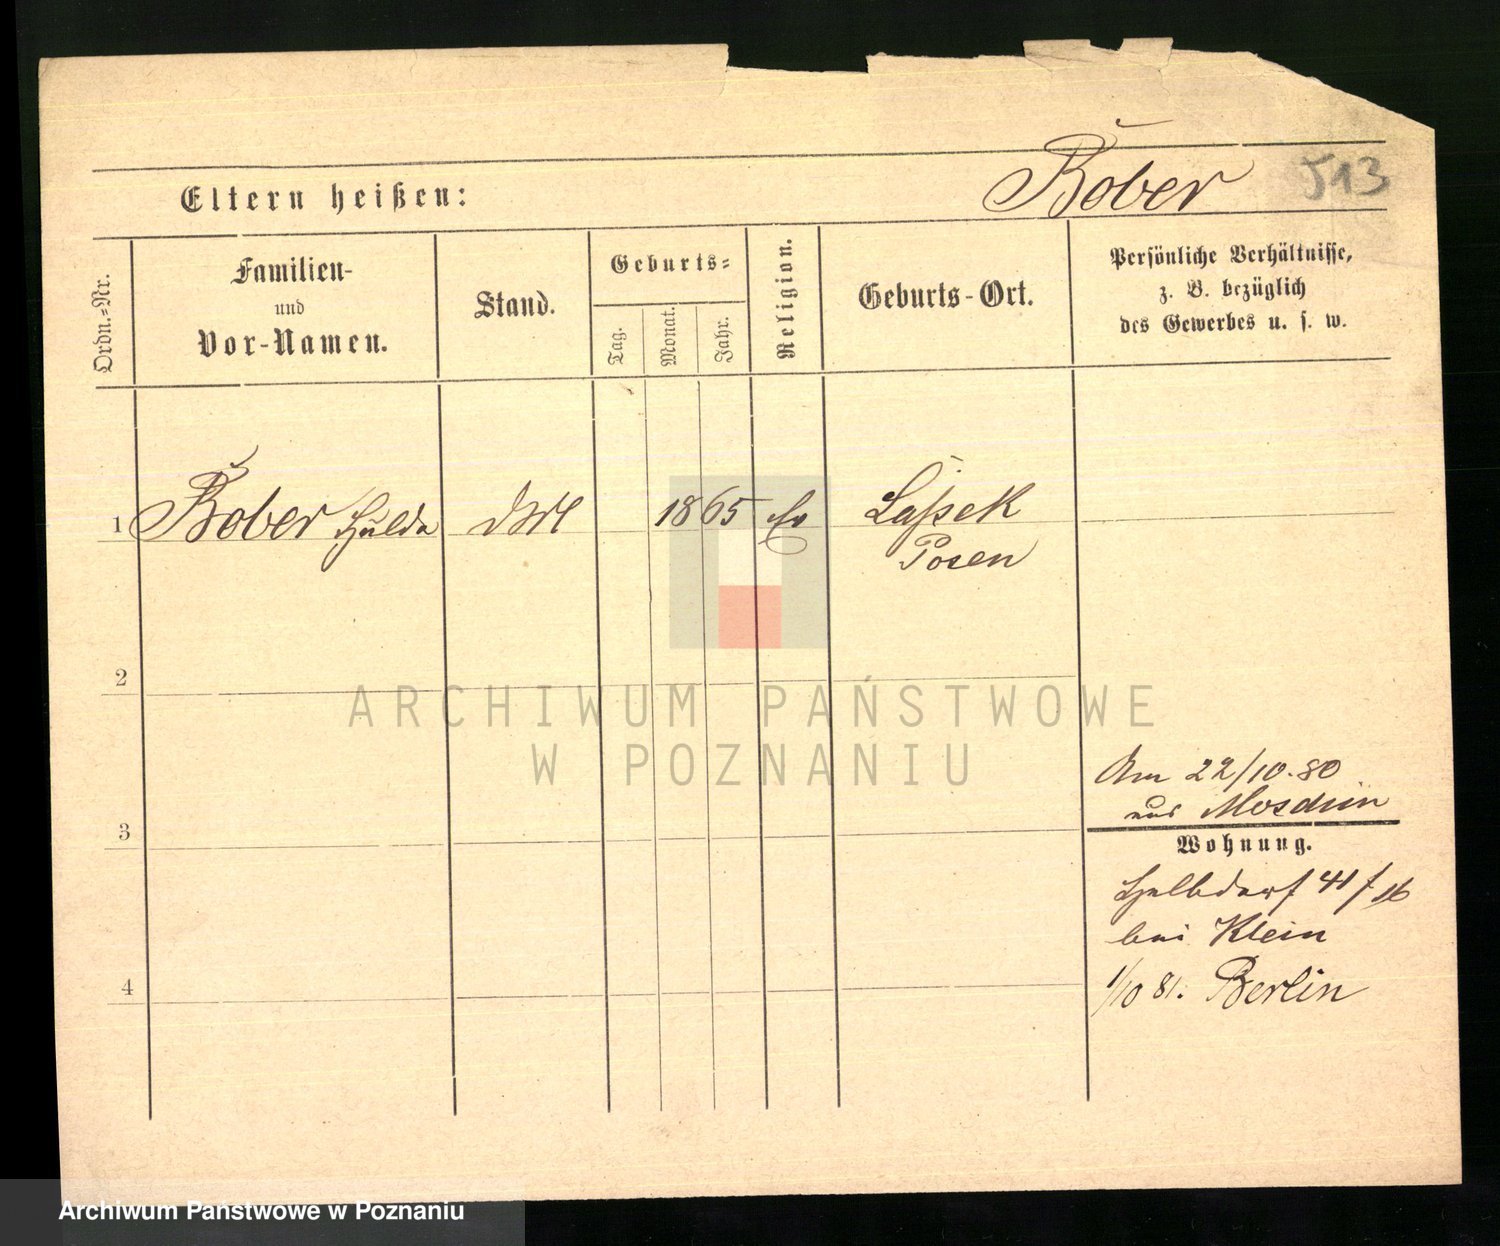 Bober
513
Eltern heißen:
Ordn.-Nr.
Familien-
und
Vor-Namen.
Stand.
Geburts-
Tag.
Monat.
Jahr.
Religion.
Geburts-Ort.
Persönliche Verhältnisse,
z. B. bezüglich
des Gewerbes u. s. w.
1
Bober Hulda
1865
Ev
Lassek
Posen
2
3
4
Am 22/10.80
aus Moschin
Wohnung.
Halbdorf
bei Klein
1/10 81. Berlin
ARCHIWUM PAŃSTWOWE
W POZNANIU
Archiwum Państwowe w Poznaniu